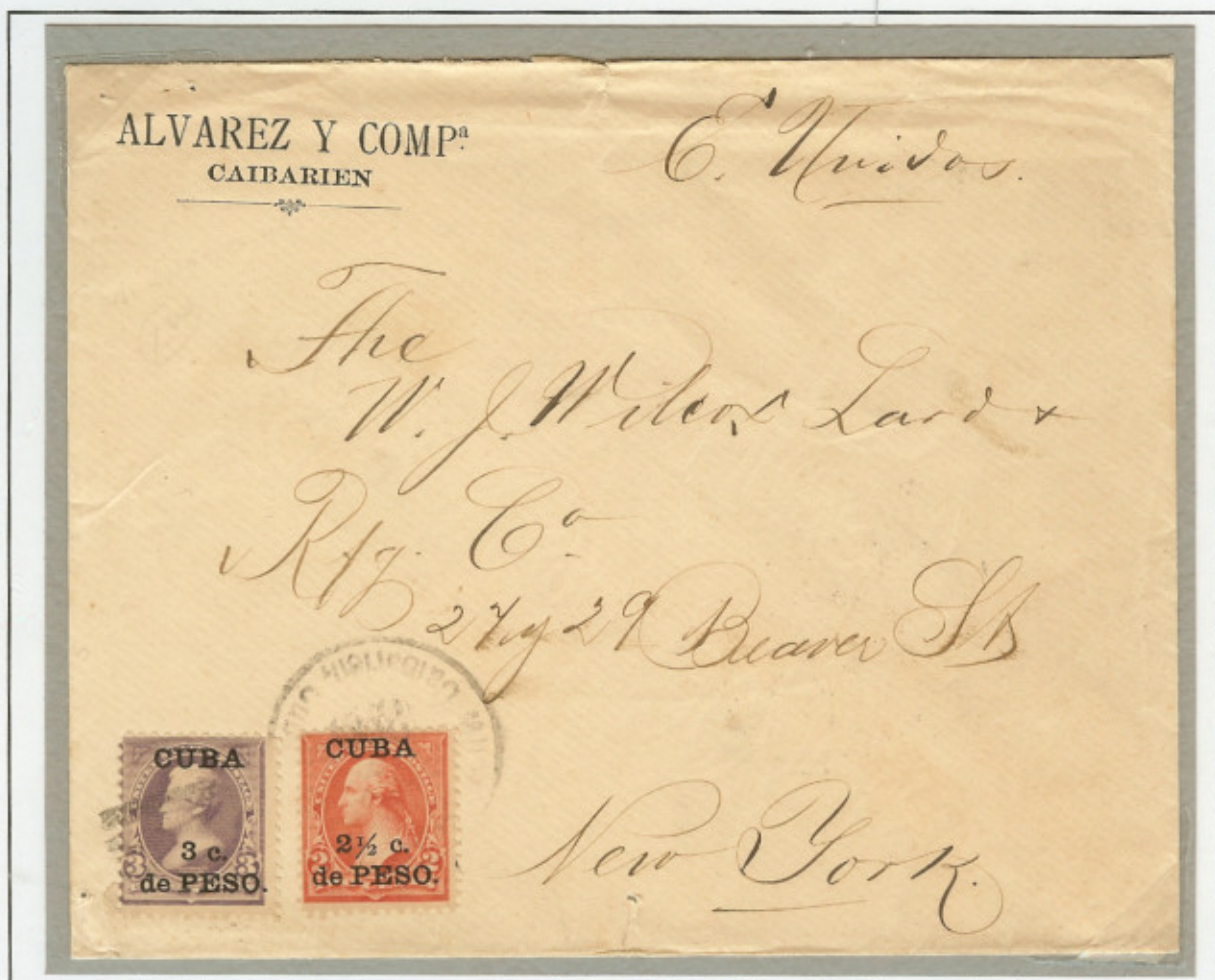 ALVAREZ Y COMPª
CAIBARIEN
E. Unidos.
The
W. J. Wilcox Lard &
Rfg. Cº
27 y 29 Beaver St
New York.
Caibarien
CUBA
3 c.
de PESO.
3 3
CUBA
2½ c.
de PESO.
2 2